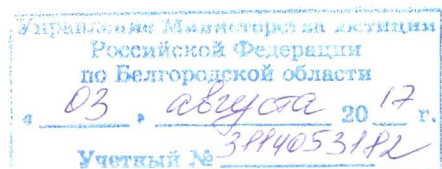 Управление Министерства юстиции
Российской Федерации
по Белгородской области
« 03 » августа 20 17 г.
Учетный № 3114053182